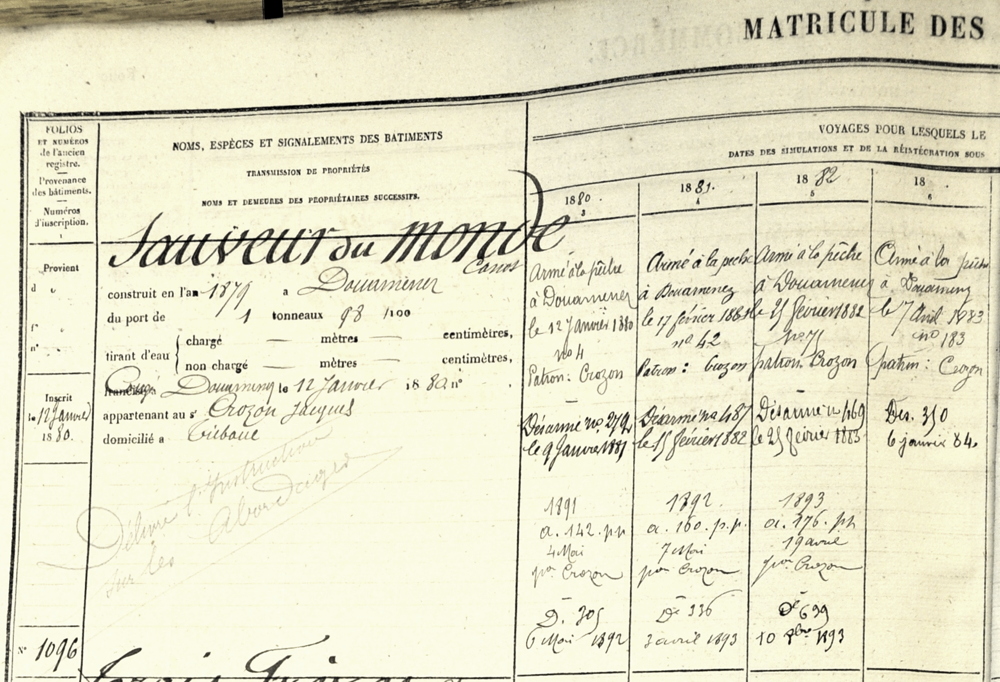 MATRICULE DES
FOLIOS
ET NUMÉROS
de l'ancien
registre.
Provenance
des bâtiments.
Numéros
d'inscription.
1
NOMS, ESPÈCES ET SIGNALEMENTS DES BÂTIMENTS
TRANSMISSION DE PROPRIÉTÉS
NOMS ET DEMEURES DES PROPRIÉTAIRES SUCCESSIFS.
VOYAGES POUR LESQUELS LE
DATES DES SIMULATIONS ET DE LA RÉINTÉGRATION SOUS
1880.
3
1881.
4
1882
5
18 .
6
Sauveur du monde
Canot
Provient
d
f°
n°
construit en l'an 1879 a Douarnenez
du port de 1 tonneaux 98 /100
tirant d'eau
chargé mètres centimètres,
non chargé mètres centimètres,
Douarnenez le 12 Janvier 1880 n° .
Inscrit
le 12 Janvier
1880.
appartenant au s^r Crozon Jacques
domicilié a Tréboul
Délivré l'Instruction
sur les Abordages
N° 1096
Armé à la pêche
à Douarnenez
le 12 Janvier 1880
n° 4
Patron: Crozon
Désarmé n° 279
le 9 Janvier 1881
1891
a. 142. p.p
4 Mai
p^on Crozon
D. 305
6 Mai 1892
Armé à la pêche
à Douarnenez
le 17 février 1881
n° 42
Patron: Crozon
Désarmé n° 487
le 15 février 1882
1892
a. 160. p.p.
7 Mai
p^on Crozon
D^é 336
3 avril 1893
Armé à la pêche
à Douarnenez
le 25 février 1882
n° 71
patron Crozon
Désarmé n° 469
le 25 février 1883
1893
a. 176. pp
19 avril
p^on Crozon
D^é 699
10 8^bre 1893
Armé à la pêche
à Douarnenez
le 7 Avril 1883
n° 183
patron: Crozon
Des. 350
6 janvier 84.